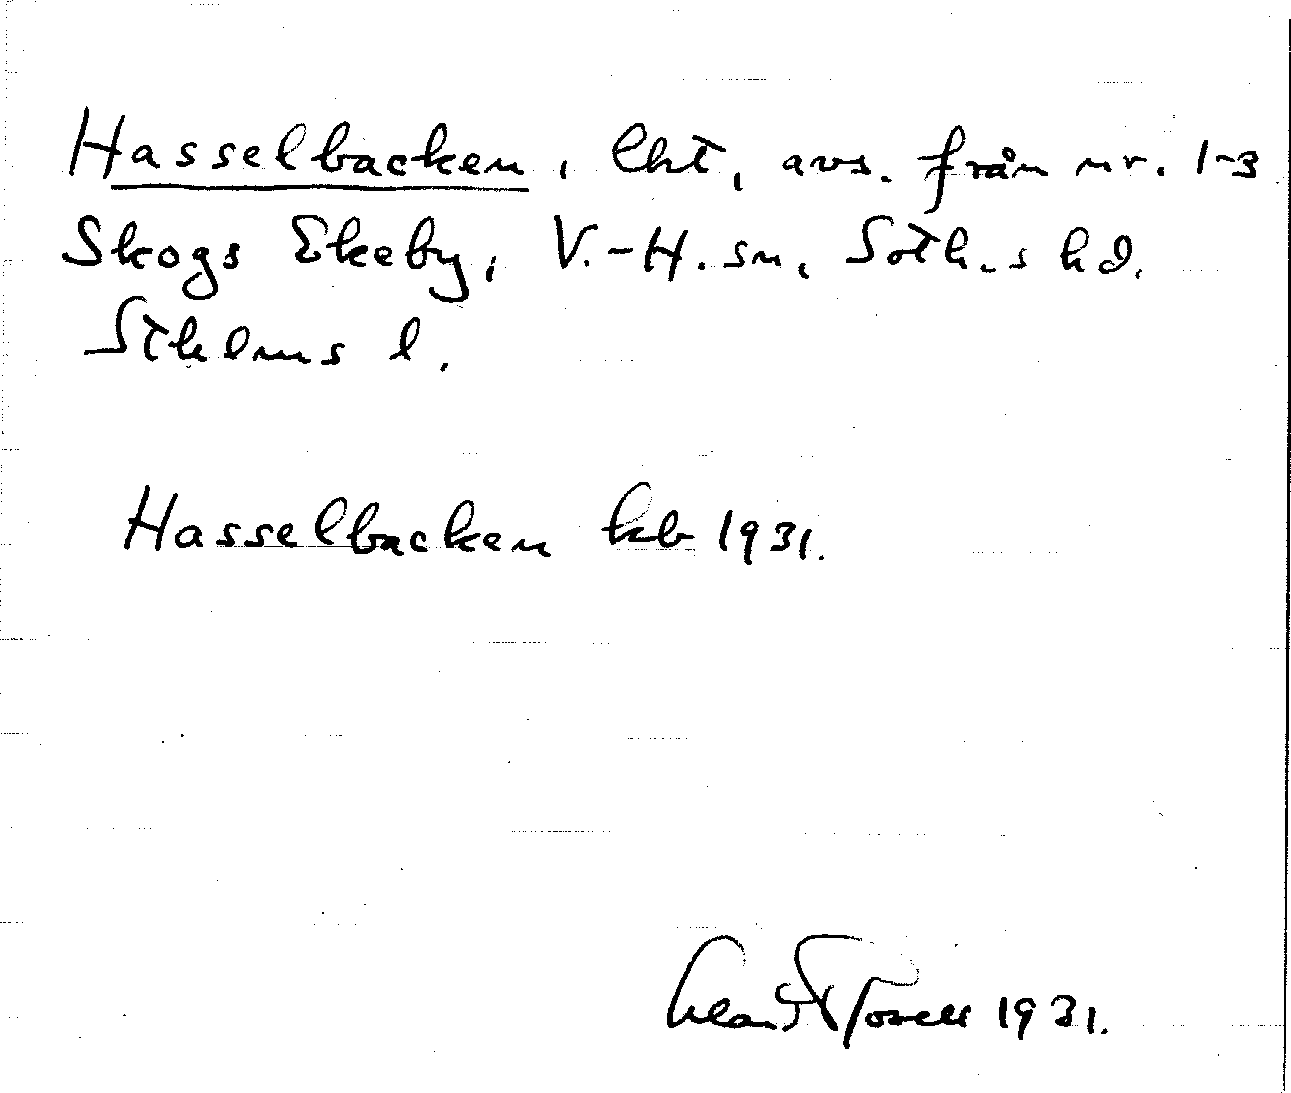 Hasselbacken, lht, avs. från nr. 1-3
Skogs Ekeby, V.-H. sn, Soth.s hd.
Sthlms l.
Hasselbacken kb 1931.
1931.